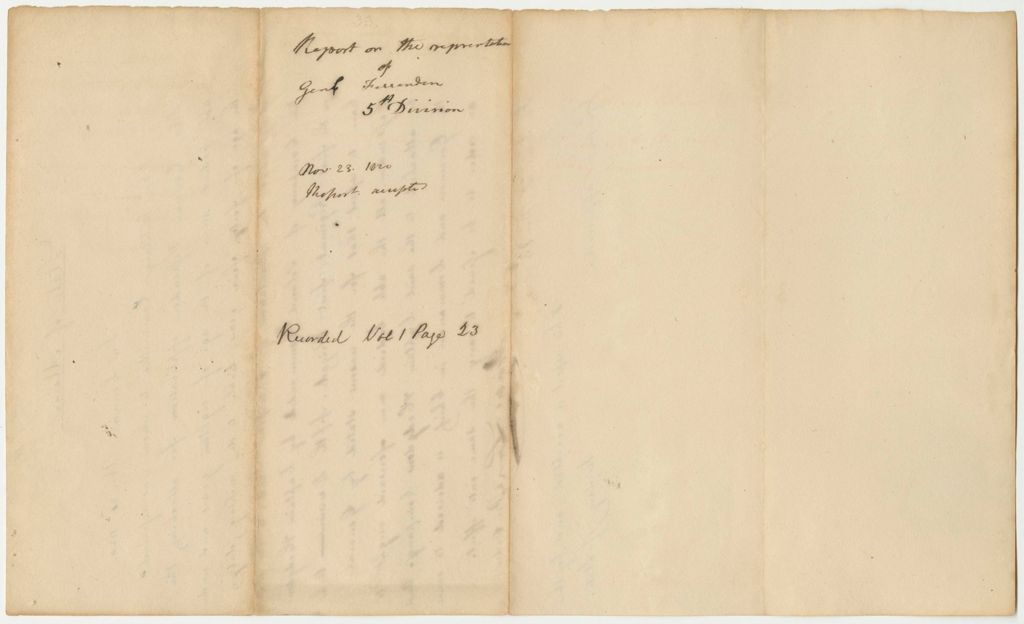 Report on the representation
of
Genl Fessenden
5th Division
Nov 23. 1820
Report accepted
Recorded Vol 1 Page 23